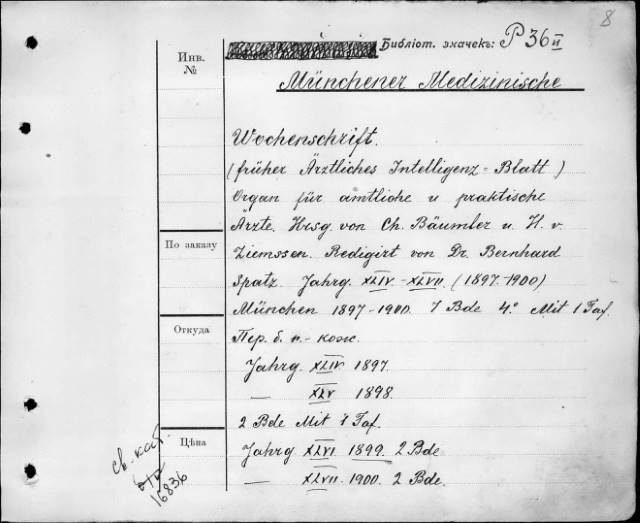 8
Библіот. значекъ: P 36 II
Инв.
№
Münchener Medizinische
Wochenschrift.
(früher Ärztliches Intelligenz-Blatt)
Organ für amtliche u praktische
Ärzte. Hrsg. von Ch. Bäumler u. H. v.
По заказу
Ziemssen. Redigirt von Dr. Bernhard
Spatz. Jahrg. XLIV-XLVII. (1897-1900)
München 1897-1900. 7 Bde 4º Mit 1 Taf.
Откуда
Пер. б. п.- кож.
Jahrg. XLIV 1897.
— XLV 1898.
2 Bde Mit 1 Taf.
Цѣна
Jahrg XLVI 1899. 2 Bde
— XLVII. 1900. 2 Bde.
св. кат.
16836